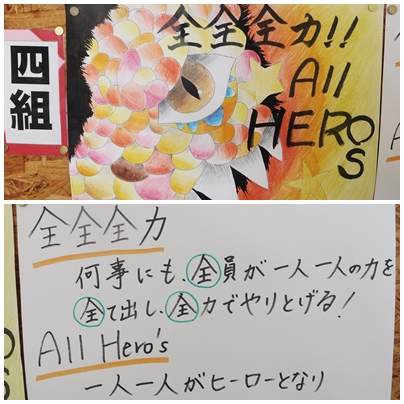 四組
全全全力!!
All
HEROS
全全全力
何事にも、全員が一人一人の力を
全て出し、全力でやりとげる!
All Hero's
一人一人がヒーローとなり